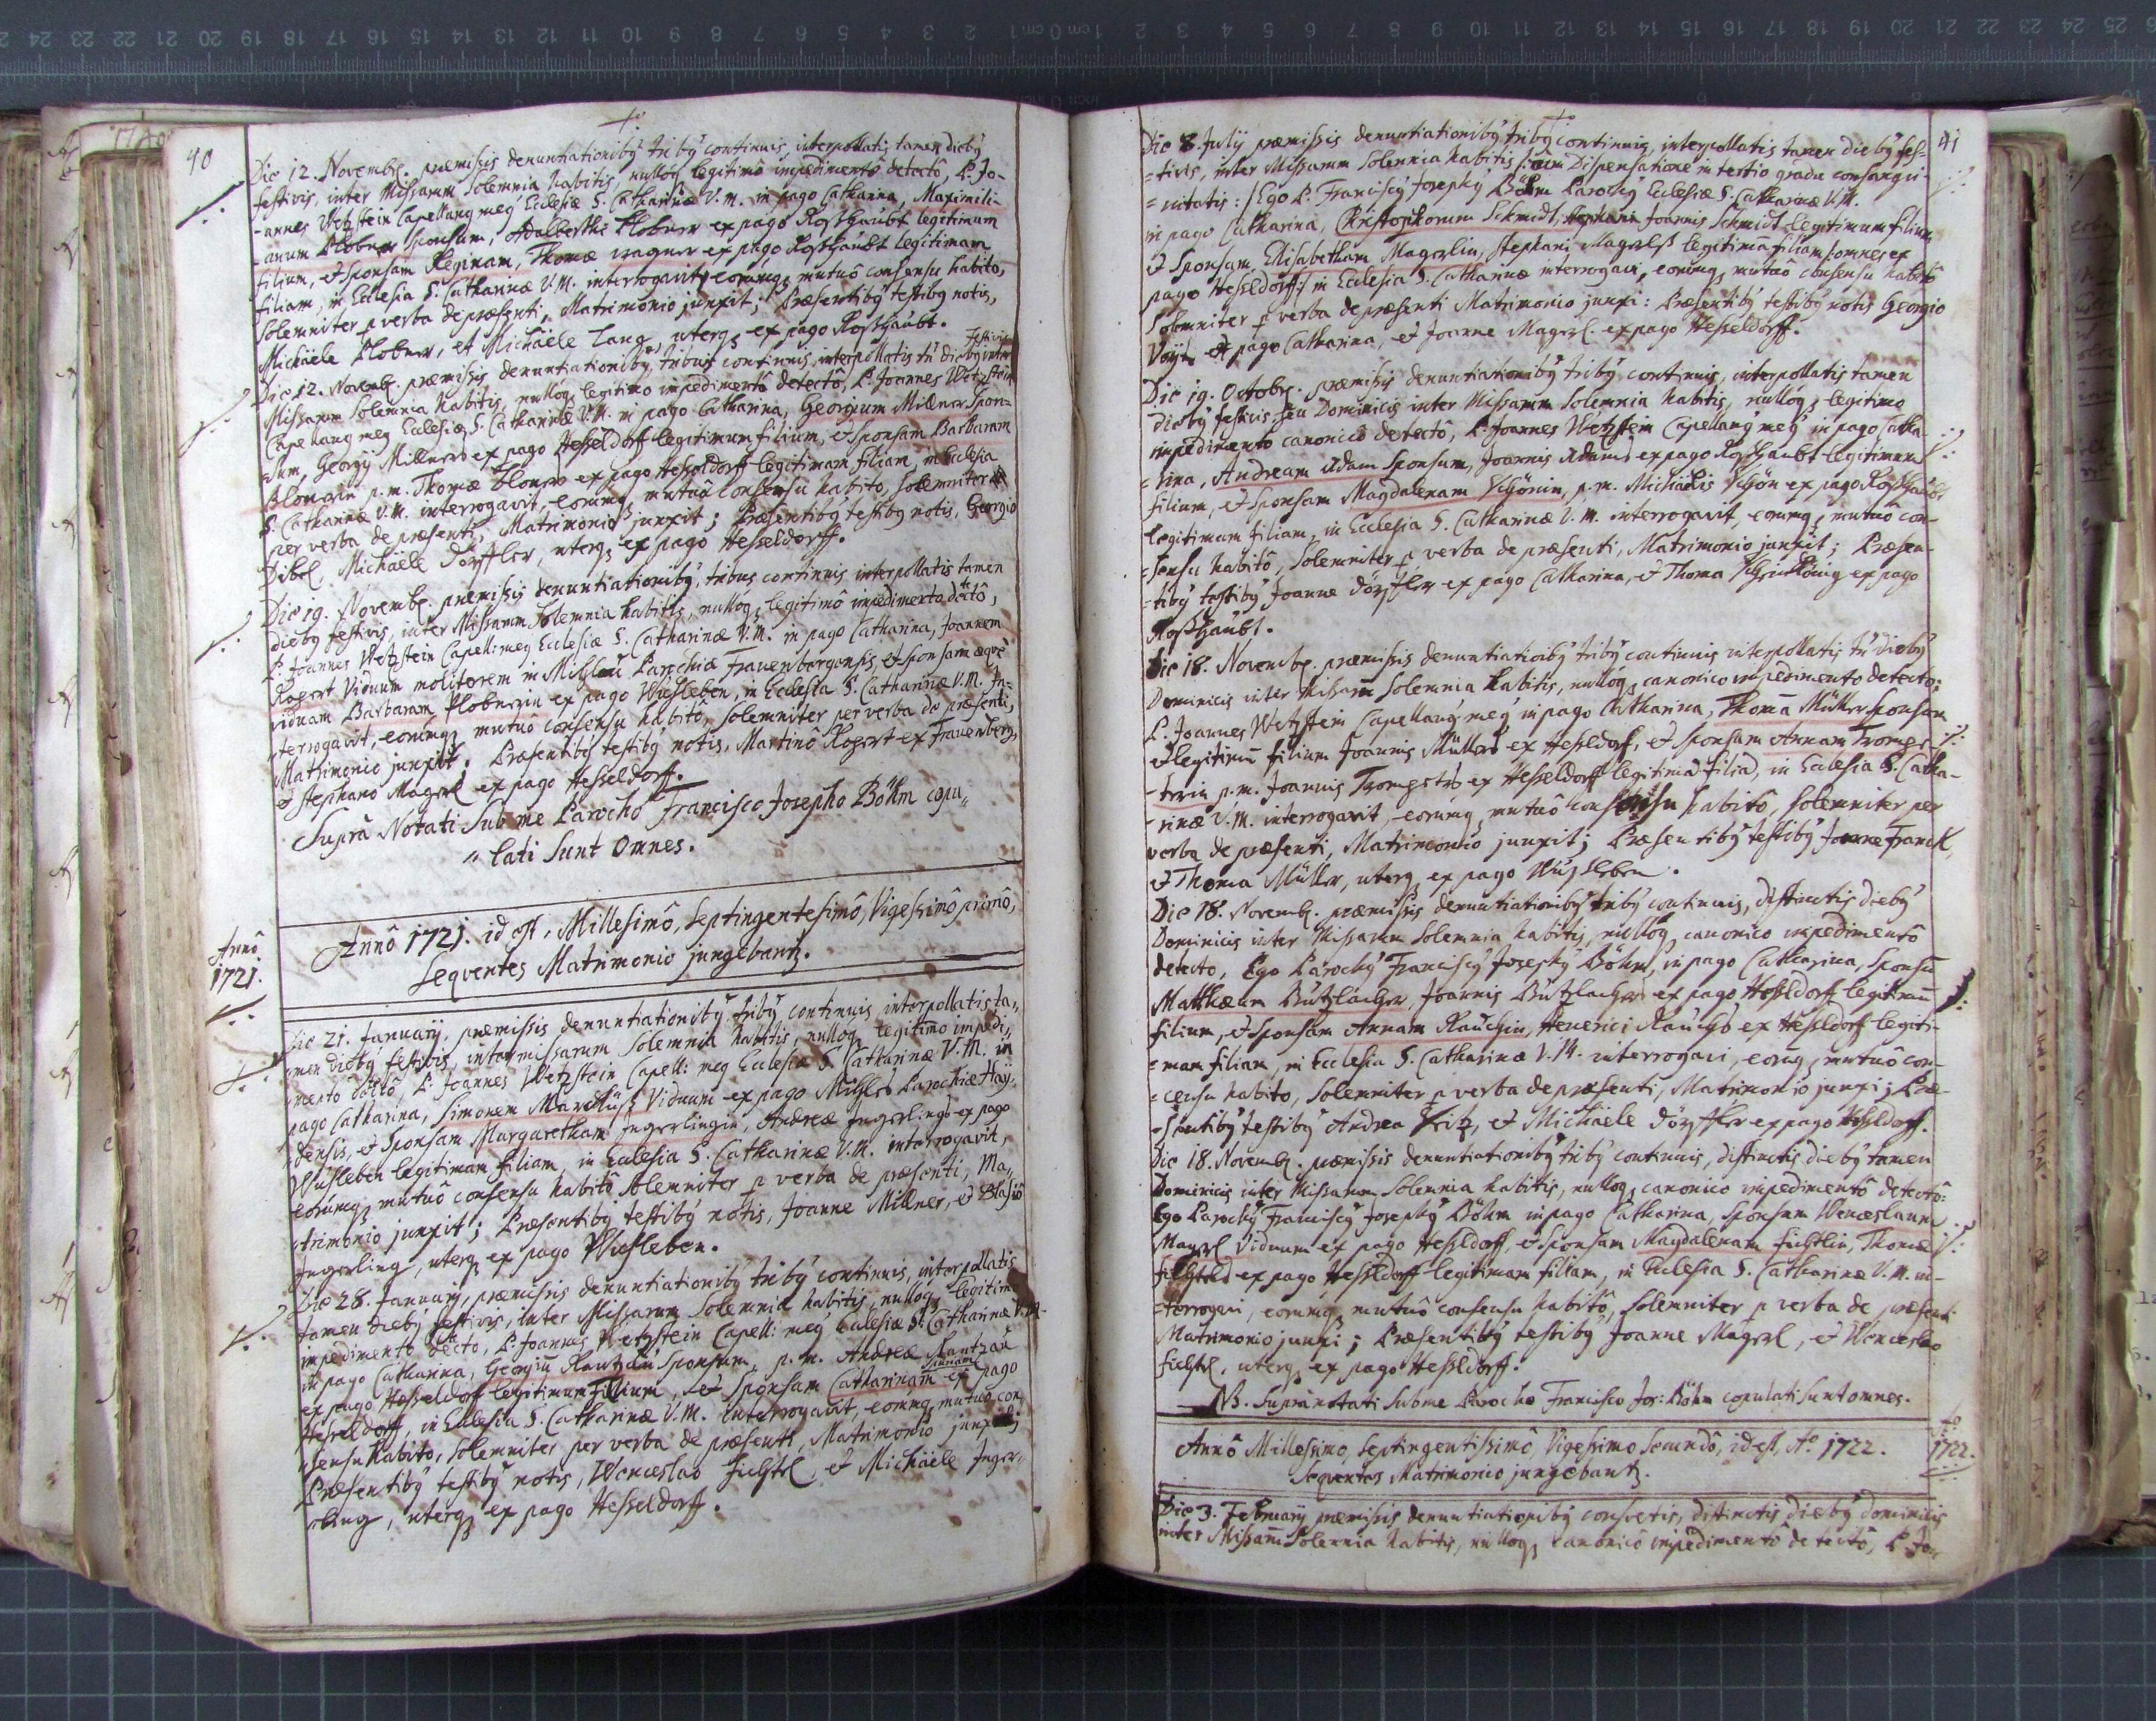 40
Die 12. Novemb. præmissis denuntiationiby triby continuis, interpollatis tamen dieby
festivis, inter Missarum Solemnia habitis, nulloq legitimô impedimentô detectô, P. Jo-
-annes Wetzstein Capellang meg Ecclesiæ S. Catharinæ V. M. in pago Catharina, Maximili-
-anum Plobner Sponsum, Adalberthi Plobner ex pago Roßhaubt legitimum
filium, et Sponsam Reginam, Thomæ wagner ex pago Roßhaubt legitimam
filiam, in Ecclesia S. Catharinæ V. M. interrogavit, eorumq mutuô consensu habito,
Solemniter p verba de præsenti, Matrimonio junxit; Præsentiby testiby notis,
Michäele Plobner, et Michäele Lang, uterq ex pago Roßhaubt.
Die 12. Novemb. præmissis denuntiationiby, tribus continuis, interpollatis tn dieby festivis inter
Missarum Solemnia habitis, nulloq legitimo impedimentô detectô, P. Joannes Wetzstein
Capellang meg Ecclesiæ S. Catharinæ V. M. in pago Catharina, Georgium Milner Spon-
=sum, Georgij Millners ex pago Hesseldorf legitimum filium, et Sponsam Barbaram
p. m. Thomæ ex pago Hesseldorff legitimam filiam, in Ecclesia
S. Catharinæ V. M. interrogavit, eorumq mutuô consensu habito, solemniter
per verba de præsenti, Matrimonio junxit; Præsentiby testiby notis, Georgio
Dibel, Michäele Dörffler, uterq ex pago Hesseldorff.
Die 19. Novemb. præmissis denuntiationiby, tribus continuis interpollatis tamen
dieby festivis, inter Missarum Solemnia habitis, nulloq legitimô impedimento dctô,
P. Joannes Wetzstein Capell: meg Ecclesiæ S. Catharinæ V. M. in pago Catharina, Joannem
Rogert Viduum molitorem in Parochiæ Frauenbergensis, et Sponsam æque
viduam Barbaram Plobnerin ex pago Wusleben, in Ecclesia S. Catharinæ V. M. In-
terrogavit, eorumq mutuô consensu habitô, Solemniter per verba de præsenti,
Matrimonio junxit. Præsentiby testiby notis, Martinô Rogert ex Frauenberg,
et Stephano Magerl ex pago Hesseldorff.
Suprà Notati Sub me Parocho Francisco Josepho Böhm copu„
„lati Sunt Omnes.
Annô 1721. id est, Millesimô, Septingentesimô, Vigessimô primô,
Seqventes Matrimonio jungebantz.
Annô
1721.
Die 21. Januarij, præmissis denuntiationiby triby continuis, interpollatis ta„
„men dieby festivis, inter missarum Solemnia habitis, nulloq legitimo impedi„
mentô dctô, P. Joannes Wetzstein Capell: meg Ecclesiæ S. Catharinæ V. M. in
pago Catharina, Simonem Viduum ex pago Parochiæ Haÿ-
densis, et Sponsam Margaretham Ingerlingin, Andreæ Ingerlings ex pago
Wusleben legitimam filiam, in Ecclesia S. Catharinæ V. M. interrogavit,
eorumq mutuô consensu habitô Solemniter p verba de præsenti, Ma„
trimonio junxit; Præsentiby testiby notis, Joanne Millner, et Blasiô
Ingerling, uterq ex pago Wusleben.
Die 28. Januarij, præmissis denuntiationiby triby continuis, interpollatis
tamen dieby festivis, inter Missarum Solemnia habitis, nulloq legitimô
impedimento dcto, P. Joannes Wetzstein Capell: meg Ecclesiæ S. Catharinæ V. M.
in pago Catharina, Georgiu Rantzau Sponsum, p. m. Andreæ Rantzau
ex pago Hesseldorff legitimum Filium, et Sponsam Catharinam ex pago
Hesseldorff, in Ecclesia S. Catharinæ V. M. interrogavit, eorumq mutuô con
sensu habito, Solemniter per verba de præsenti, Matrimoniô junxit;
Præsentiby testiby notis, Wenceslao Fichtl, et Michäele Inger-
ling, uterq ex pago Hesseldorff.
41
Die 8. July præmissis denuntiationiby triby continuis, interpollatis tamen dieby fes-
=tivis, inter Missarum Solemnia habitis |: cum Dispensatione in tertio gradu consangui-
=nitatis: | Ego P. Franciscy Josephy Böhm Parochy Ecclesiæ S. Catharinæ V. M.
in pago Catharina, Christophorum Schmidt, Joannis Schmidt legitimum filium
et Sponsam Elisabetham Magerlin, Stephani Magerls legitima filiam |: omnes ex
pago Hesseldorff :| in Ecclesia S. Catharinæ interrogavi, eorumq mutuô consensu habitô
Solemniter p verba de præsenti Matrimonio junxi: Præsentiby testiby notis Georgio
Voÿt ex pago Catharina, et Joanne Magerl ex pago Hesseldorff.
Die 19. Octobr. præmissis denuntiationiby triby continuis, interpollatis tamen
dieby festivis seu Dominicis inter Missarum Solemnia habitis, nulloq legitimo
impedimento canonicô detectô, P. Joannes Wetzstein Capellang meg in pago Catha-
=rina, Andream Adam Sponsum, Joannis Adams ex pago Roßhaubt legitimum
filium, et Sponsam Magdalenam Schönin, p. m. Michäelis Schön ex pago Roßhaubt
legitimam filiam, in Ecclesia S. Catharinæ V. M. interrogavit, eorumq mutuô con-
=sensu habitô, Solemniter p verba de præsenti, Matrimonio junxit; Præsen-
=tiby testiby Joanne Dörfler ex pago Catharina, et Thoma ex pago
Roßhaubt.
Die 18. Novemb. præmissis denuntiationiby triby continuis interpollatis tn dieby
Dominicis inter Missarum Solemnia habitis, nulloq canonico impedimento detecto;
P. Joannes Wetzstein Capellang meg in pago Catharina, Thomam Müller Sponsum
et legitimum filium Joannis Müllers ex Hesseldorf, et Sponsam Annam Tromps-
-terin p. m. Joannis ex Hesseldorff legitima filia, in Ecclesia S. Catha-
-rinæ V. M. interrogavit, eorumq mutuô consensu habitô, Solemniter per
verba de præsenti, Matrimonio junxit; Præsentiby testiby Joanne Franckl,
et Thoma Müller, uterq ex pago Wusleben.
Die 18. Novemb. præmissis denuntiationiby triby continuis, distinctis dieby
Dominicis inter Missarum Solemnia habitis, nulloq canonico impedimentô
detecto, Ego Parochy Franciscy Josephy Böhm, in pago Catharina, Sponsum
Matthæum Butzlacher, Joannis Butzlachers ex pago Hesseldorff legitimum
filium, et Sponsam Annam Rauchin, Henrici Rauchs ex Hesseldorf legiti-
=mam filiam, in Ecclesia S. Catharinæ V. M. interrogavi, eorumq mutuô con-
=censu habito, Solemniter p verba de præsenti, Matrimonio junxi; Præ-
-sentiby testiby Andrea Fritz, et Michäele Dörffler ex pago Hesseldorff.
Die 18. Novemb. præmissis denuntiationiby triby continuis, distinctis dieby tamen
Dominicis inter Missarum Solemnia habitis, nulloq canonico impedimentô detectô:
Ego Parochy Franciscy Josephy Böhm in pago Catharina, Sponsum Wenceslaum
Magerl Viduum ex pago Hesseldorff, et Sponsam Magdalenam Fichtlin, Thomæ
Fichtls ex pago Hesseldorff legitimam filiam, in Ecclesia S. Catharinæ V. M. in-
=terrogavi, eorumq mutuô consensu habitô, Solemniter p verba de præsenti
Matrimonio junxi; Præsentiby testiby Joanne Magerl, et Wenceslao
Fichtl, uterq ex pago Hesseldorff.
NB. Supranotati Sub me Parocho Francisco Jos: Böhm copulati sunt omnes.
Annô Millesimo, Septingentissimô, Vigessimo Secundô, id est, Aº 1722.
Seqventes Matrimonio jungebantz.
Aº
1722.
Die 3. February præmissis denuntiationiby consvetis, distinctis dieby dominicis
inter Missarum Solemnia habitis, nulloq canonicô impedimentô detectô, P. Joa